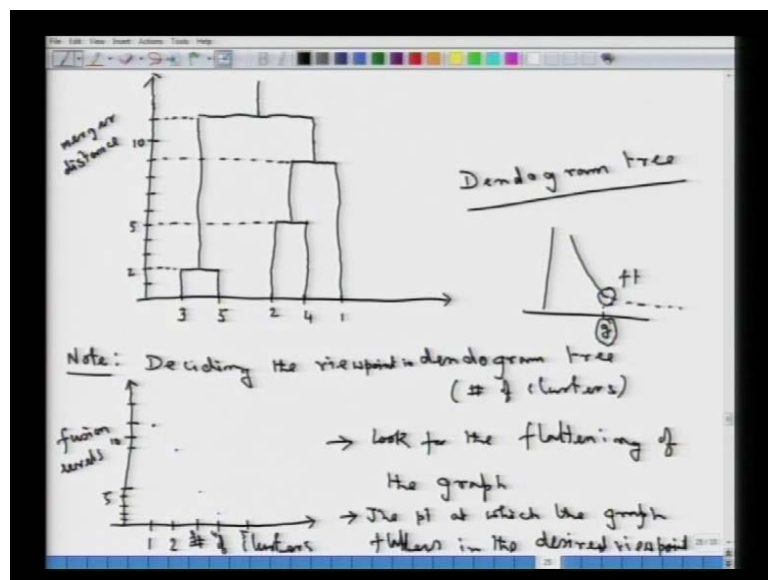 File Edit View Insert Actions Tools Help
merger
distance
10
5
2
3 5 2 4 1
Dendogram tree
ft
g
Note: Deciding the viewpoint in dendogram tree
(# of clusters)
fusion
levels
10
5
1 2 # of clusters
→ Look for the flattening of
the graph
→ The pt at which the graph
flattens in the desired viewpoint